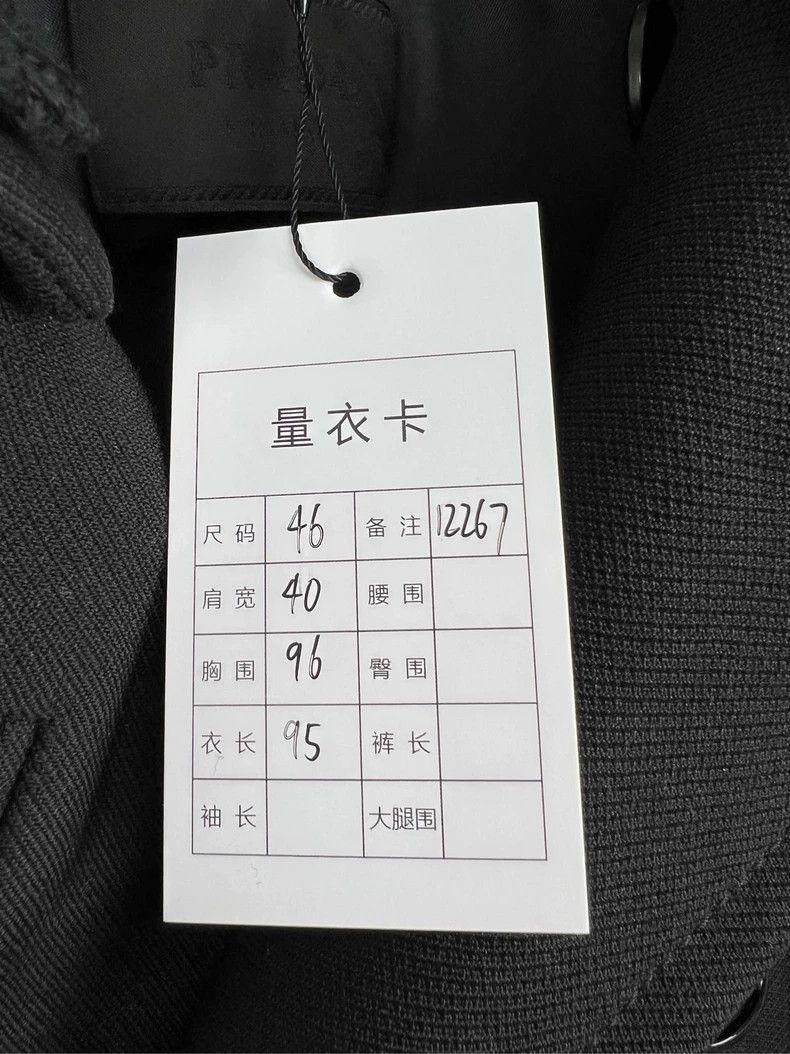 PRADA
量衣卡
尺码 46 备注 12267
肩宽 40 腰围
胸围 96 臀围
衣长 95 裤长
袖长 大腿围